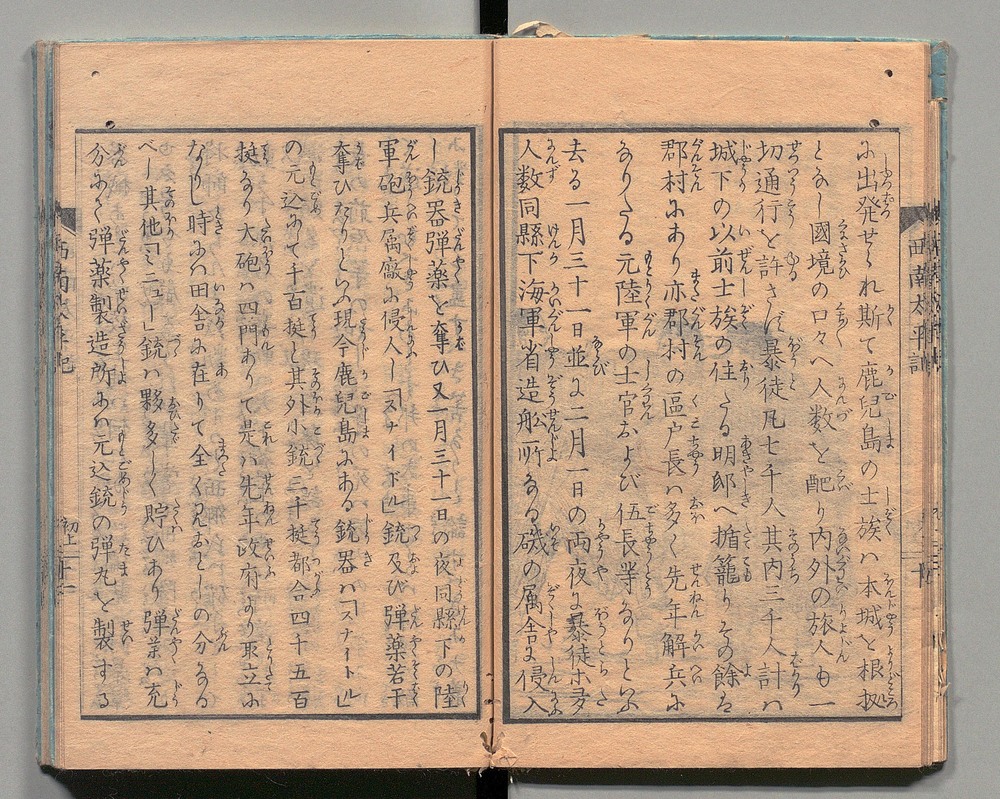 に出発せられ斯て鹿児島の士族ハ本城を根拠
となし國境の口々へ人数を配り内外の旅人も一
切通行を許さず暴徒凡七千人其内三千人計ハ
城下の以前士族の住たる明邸へ楯籠りその餘は
郡村にあり亦郡村の區戸長ハ多く先年解兵に
なりたる元陸軍の士官および伍長等なりといふ
去る一月三十一日並に二月一日の両夜に暴徒
人数同縣下海軍省造船所なる磯の属舎に侵入
し銃器弾薬を奪ひ又一月三十一日の夜同縣下の陸
軍砲兵属廠に侵入し「スナイドル」銃及び弾薬若干
奪ひたりといふ現今鹿児島にある銃器ハ「スナイトル」
の元込にて千百挺と其外小銃三千挺都合四千五百
挺なり大砲ハ四門ありて是ハ先年政府より取立に
なりし時にハ田舎に在りて全く見おとしの分なる
べし其他「ミニユー」銃ハ夥多しく貯ひあり弾薬ハ充
分にて弾薬製造所にハ元込銃の弾丸を製する
西南太平記
初上